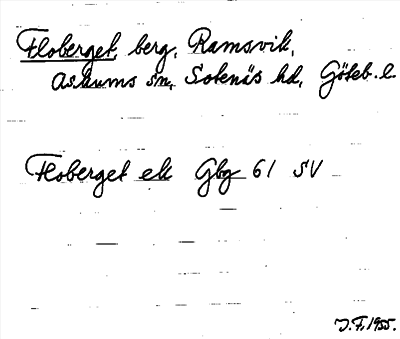 Floberget, berg, Ramsvik,
Askums sn, Sotenäs hd, Göteb. l.
Floberget ek Gbg 61 SV
J.F. 1955.